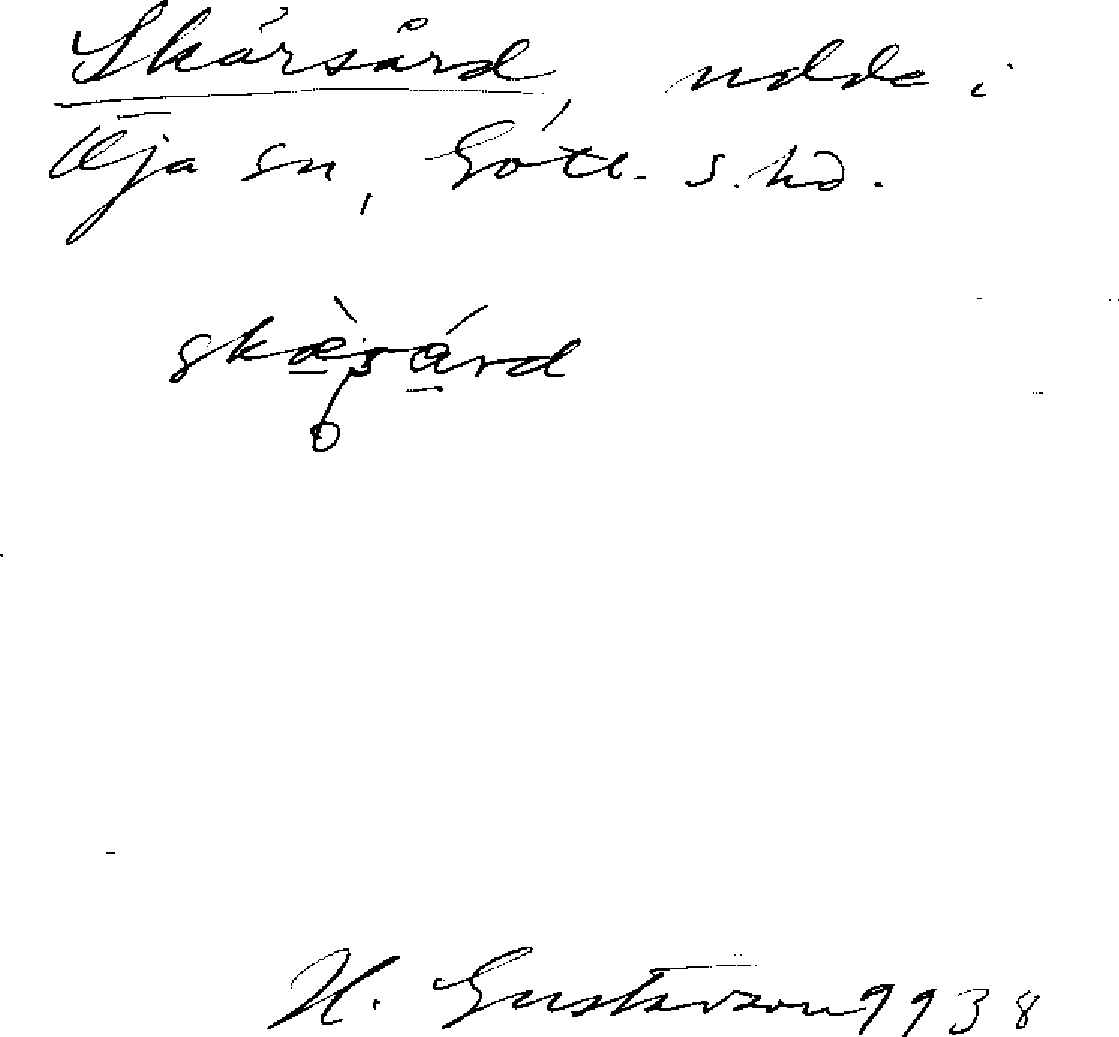 Skärsård, udde i
Öja sn, Gotl. s. hd.
skæ̀sárd
H. Gustavson 1938